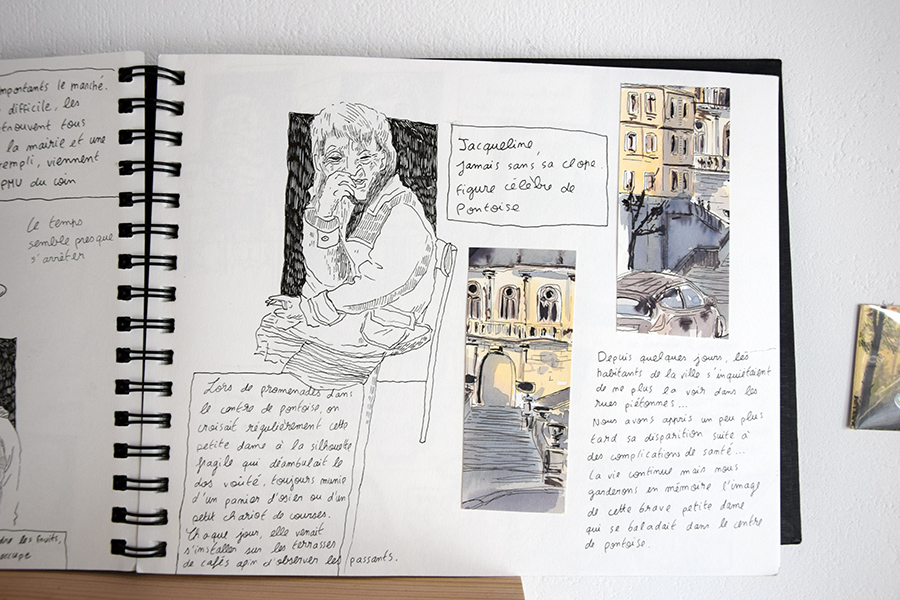 importants le marché.
difficile, les
trouvent tous
la mairie et une
rempli, viennent
PMU du coin
le temps
semble presque
s'arrêter
les fruits,
Jacqueline,
jamais sans sa clope
figure célèbre de
Pontoise
Lors de promenades dans
le centre de pontoise, on
croisait régulièrement cette
petite dame à la silhouette
fragile qui déambulait le
dos voûté, toujours munie
d'un panier d'osier ou d'un
petit chariot de courses.
Chaque jour, elle venait
s'installer sur les terrasses
de cafés afin d'observer les passants.
Depuis quelques jours, les
habitants de la ville s'inquiétaient
de ne plus la voir dans les
rues piétonnes...
Nous avons appris un peu plus
tard sa disparition suite à
des complications de santé...
La vie continue mais nous
garderons en mémoire l'image
de cette brave petite dame
qui se baladait dans le centre
de pontoise.